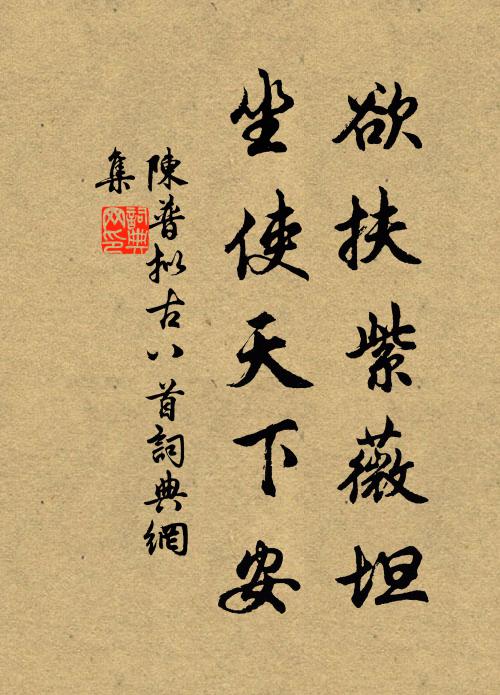 欲扶紫薇坦
坐使天下安
陳普擬古八首詞典網
集
詞典網印